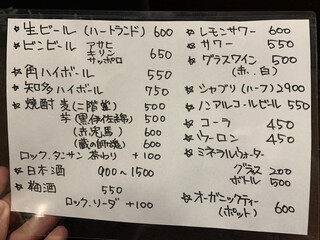 ☆ 生ビール (ハートランド) 600
☆ ビンビール アサヒ
キリン 650
サッポロ
☆ 角ハイボール 550
☆ 知多ハイボール 750
☆ 焼酎 麦(二階堂) 500
芋(黒伊佐錦) 500
(赤兎馬) 600
(蔵の師魂) 600
ロック、タンサン 茶わり +100
☆ 日本酒 900~1500
☆ 梅酒 550
ロック、ソーダ +100
☆ レモンサワー 600
☆ サワー 550
☆ グラスワイン 500
(赤、白)
☆ シャブリ(ハーフ) 2900
☆ ノンアルコールビール 550
☆ コーラ 450
☆ ウーロン 450
☆ ミネラルウォーター
グラス 200
ボトル 500
☆ オーガニックティー
(ポット) 600